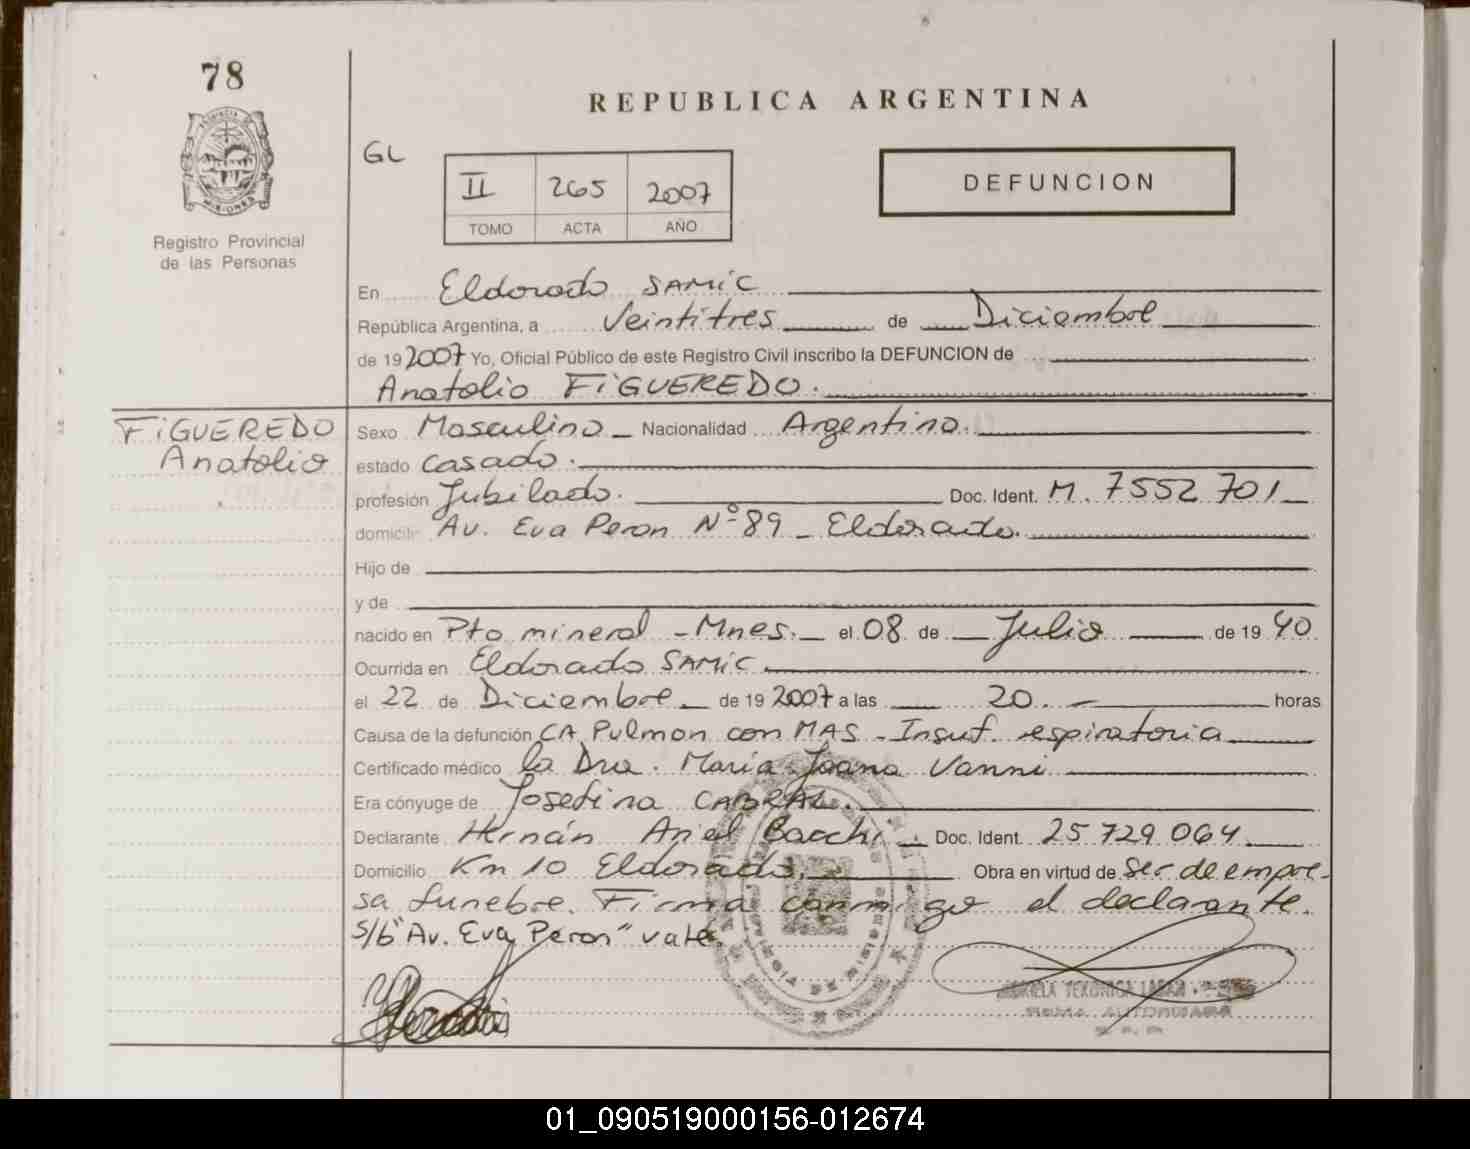 78
REPUBLICA ARGENTINA
GL
II 265 2007
TOMO ACTA AÑO
DEFUNCION
Registro Provincial
de las Personas
En Eldorado SAMIC
República Argentina, a Veintitres de Diciembre
de 19 2007 Yo, Oficial Público de este Registro Civil inscribo la DEFUNCION de
Anatolio FIGUEREDO.
FIGUEREDO
Anatolio
Sexo Masculino Nacionalidad Argentino.
estado Casado.
profesión Jubilado. Doc. Ident. M. 7552701
domicilio Av. Eva Peron Nº 89 - Eldorado.
Hijo de
y de
nacido en Pto mineral - Mnes. el 08 de Julio de 19 40
Ocurrida en Eldorado SAMIC.
el 22 de Diciembre de 19 2007 a las 20. horas
Causa de la defunción CA Pulmon con MAS - Insuf. respiratoria
Certificado médico la Dra. Maria Joana Vanni
Era cónyuge de Josefina CABRAL.
Declarante Hernán Ariel Bacchi. Doc. Ident. 25 729 064.
Domicilio Km 10 Eldorado. Obra en virtud de Ser de empre-
sa funebre. Firma conmigo el declarante.
S/b "Av. Eva Peron" vale.
01_090519000156-012674